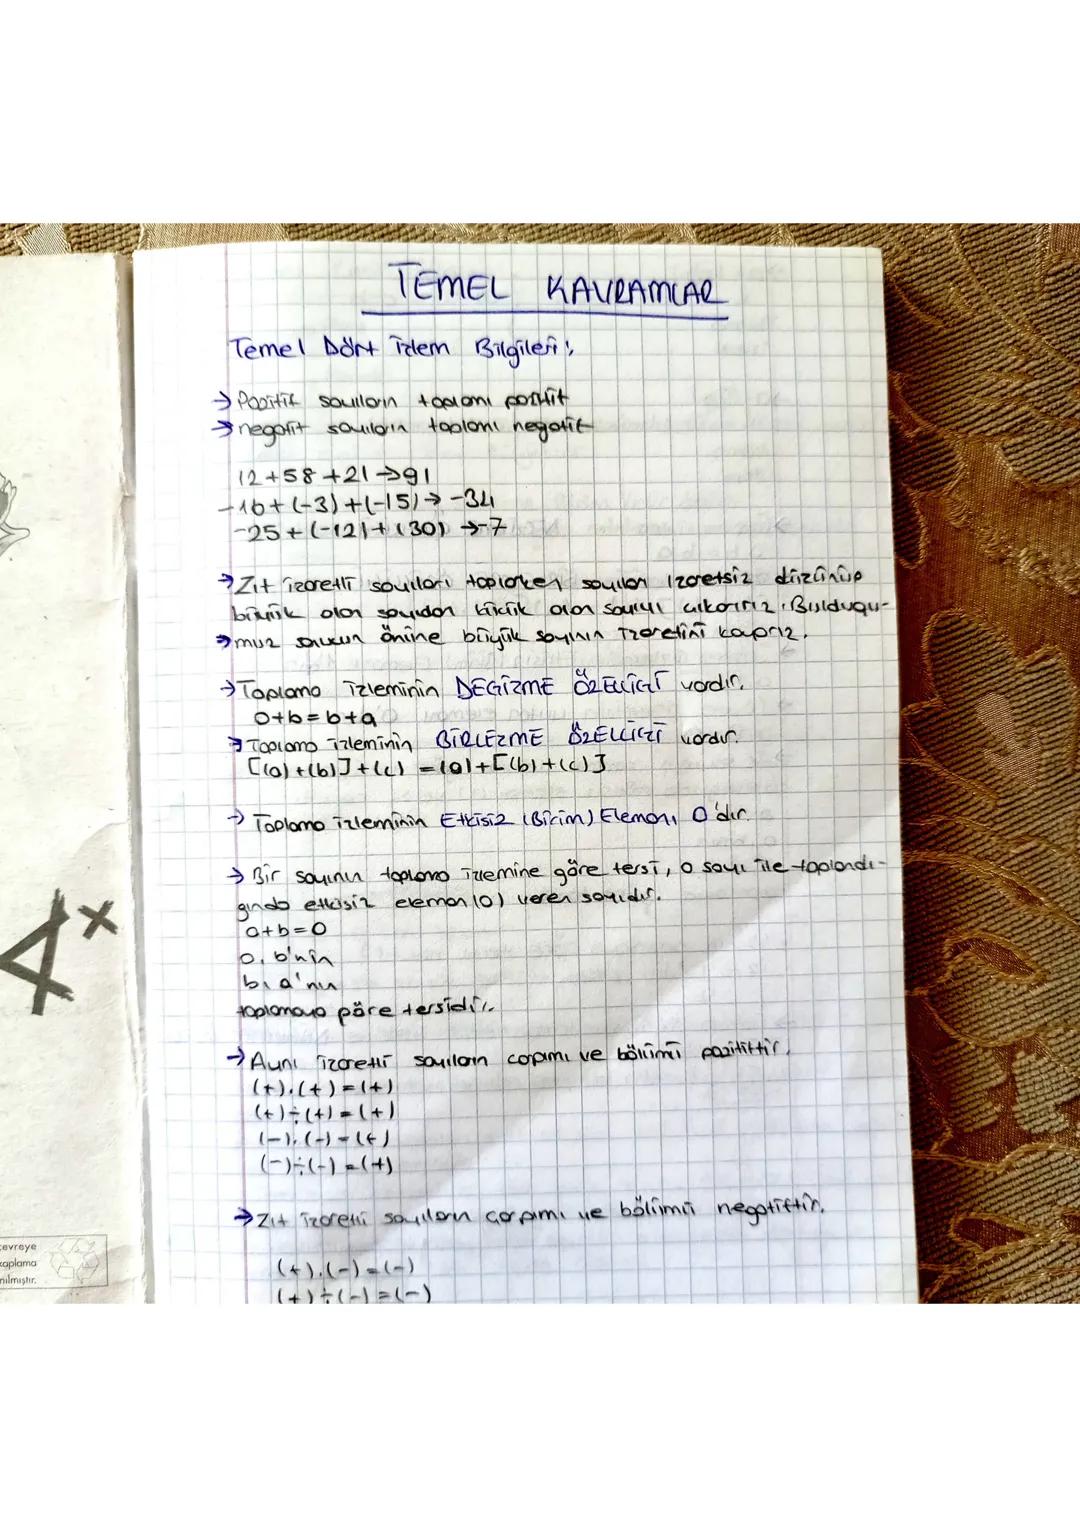 TEMEL KAVRAMLAR
Temel Dört İşlem Bilgileri:
→ Pozitif sayıların toplamı pozitif
→ negatif sayıların toplamı negatif
12+58+21→91
-16+(-3)+(-15)→ -34
-25+(-12)+(30) →-7
→ Zıt işaretli sayıları toplarken sayıları işaretsiz düşünüp
büyük olan sayıdan küçük olan sayıyı çıkarırız. Bulduğu-
→ muz sonucun önüne büyük sayının işaretini koyarız.
→ Toplama işleminin DEĞİŞME ÖZELLİĞİ vardır.
a+b=b+a
→ Toplama işleminin BİRLEŞME ÖZELLİĞİ vardır.
[(a)+(b)]+(c) =(a)+[(b)+(c)]
→ Toplama işleminin Etkisiz (Birim) Elemanı 0'dır.
→ Bir sayının toplama işlemine göre tersi, o sayı ile toplandı-
ğında etkisiz eleman (0) veren sayıdır.
a+b=0
a, b'nin
b, a'nın
toplamaya göre tersidir.
→ Aynı işaretli sayıların çarpımı ve bölümü pozitiftir.
(+).(+)=(+)
(+)÷(+)=(+)
(-).(-)=(+)
(-)÷(-)=(+)
→ Zıt işaretli sayıların çarpımı ve bölümü negatiftir.
(+).(-)=(-)
(+)÷(-)=(-)
A+
çevreye
kaplama
nılmıştır.